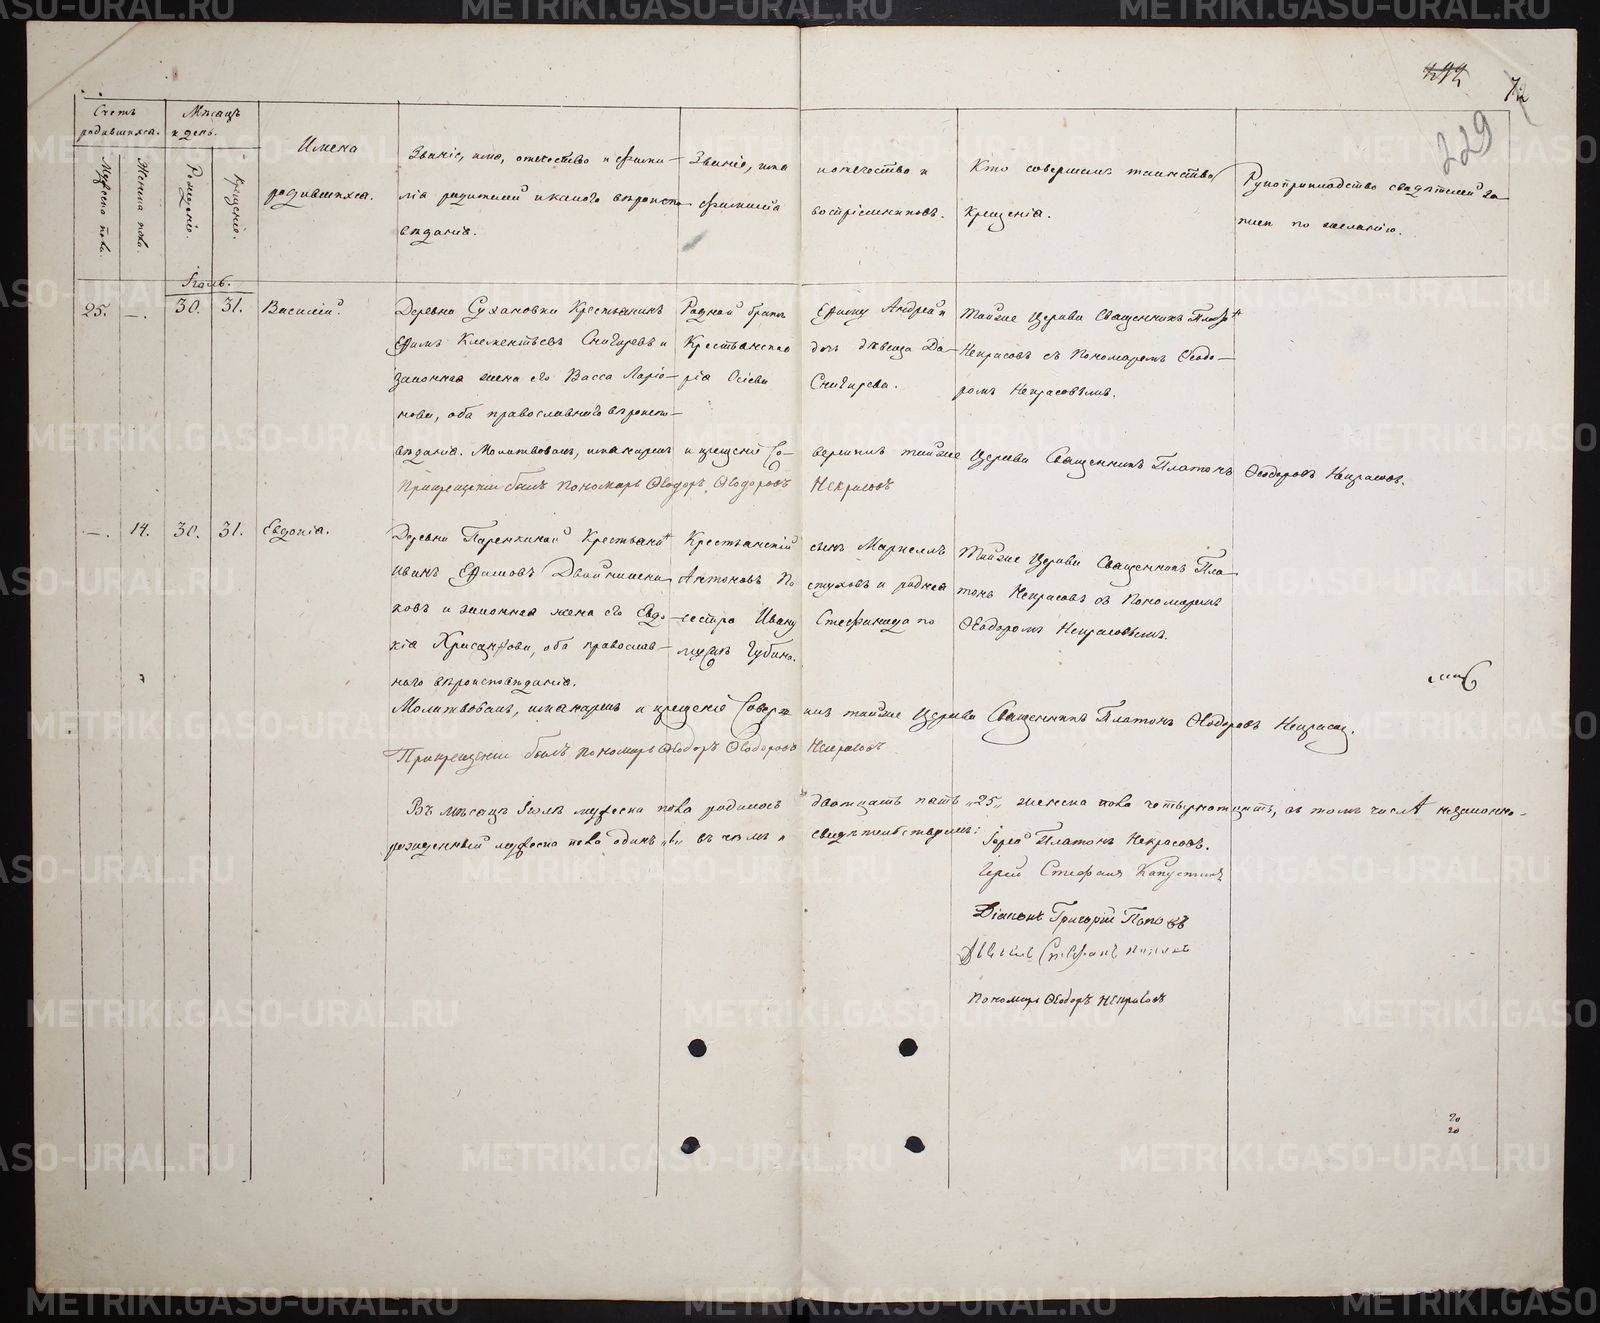 METRIKI.GASO-URAL.RU
229
Счетъ родившихся.
Мужеска пола.
Женска пола.
Мѣсяцъ и день.
Рожденія.
Крещенія.
Имена родившихся.
Званіе, имя, отечество и фамилія родителей и какого вѣроисповѣданія.
Званіе, имя и отечество и фамилія воспріемниковъ.
Кто совершалъ таинство Крещенія.
Рукоприкладство свидѣтелей записи по желанію.
Іюль.
25. —. 30. 31. Василій.
Деревни Сухановки Крестьянинъ
Ефимъ Клементьевъ Снигиревъ и
законная жена его Васса Ларіо-
нова, оба православнаго вѣроиспо-
вѣданія.
Родной братъ Ефиму Андрей и
Крестьянская дочь дѣвица Да-
рія Осіева Снигирева.
Тойже Церкви Священникъ Платонъ
Некрасовъ съ Пономаремъ Ѳеодо-
ромъ Некрасовымъ.
Молитвовалъ, имянарек и крещеніе совершилъ тойже Церкви Священникъ Платонъ Ѳеодоровъ Некрасовъ.
При крещеніи былъ пономарь Ѳеодоръ Ѳеодоровъ Некрасовъ
—. 14. 30. 31. Евдокія.
Деревни Паренкиной Крестьянинъ
Иванъ Ефимовъ Двойнишни-
ковъ и законная жена его Евдо-
кія Хрисанфова, оба православ-
наго вѣроисповѣданія.
Крестьянскій сынъ Маркеллъ
Антоновъ Пастуховъ и родная
сестра Ивану Стефанида по
мужѣ Губина.
Тойже Церкви Священникъ Пла-
тонъ Некрасовъ съ Пономаремъ
Ѳеодоромъ Некрасовымъ.
Молитвовалъ, имянарек и крещеніе совершилъ тойже Церкви Священникъ Платонъ Ѳеодоровъ Некрасовъ.
При крещеніи былъ пономарь Ѳеодоръ Ѳеодоровъ Некрасовъ
Въ мѣсяцѣ Іюлѣ мужеска пола родилось двадцать пять „25„ женска пола четырнадцать, въ томъ числѣ незаконно-
рожденный мужеска пола одинъ „1„ въ чемъ и свидѣтельствуемъ:
Іерей Платонъ Некрасовъ.
Іерей Стефанъ Капустинъ
Діаконъ Григорій Поповъ
Дьячекъ Стефанъ Поповъ
Пономарь Ѳеодоръ Некрасовъ